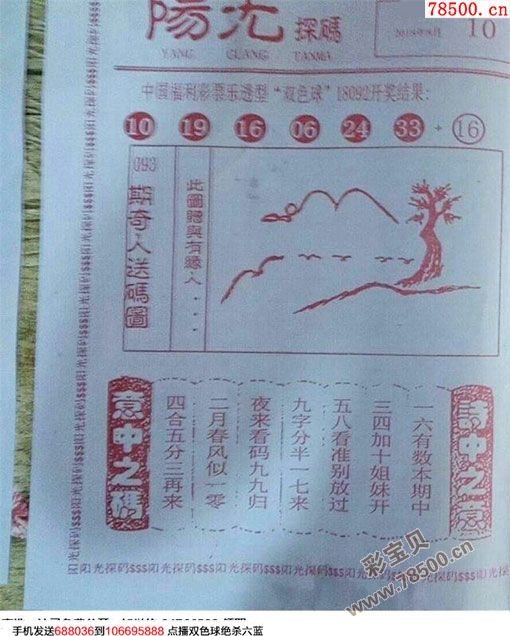 78500.cn
陽光探碼
YANG GUANG TANMA
2018年8月
10
中国福利彩票乐透型“双色球”18092开奖结果:
10 19 16 06 24 33 + 16
093
期奇人送碼圖
此圖贈與有緣人...
一六有数本期中
三四加十姐妹开
五八看准别放过
九字分半一七来
夜来看码九九归
二月春风似一零
四合五分三再来
意中之碼
阳光探码$$$阳光探码$$$阳光探码$$$阳光探码$$$阳光探码$$$
彩宝贝
www.78500.cn
手机发送688036到106695888 点播双色球绝杀六蓝